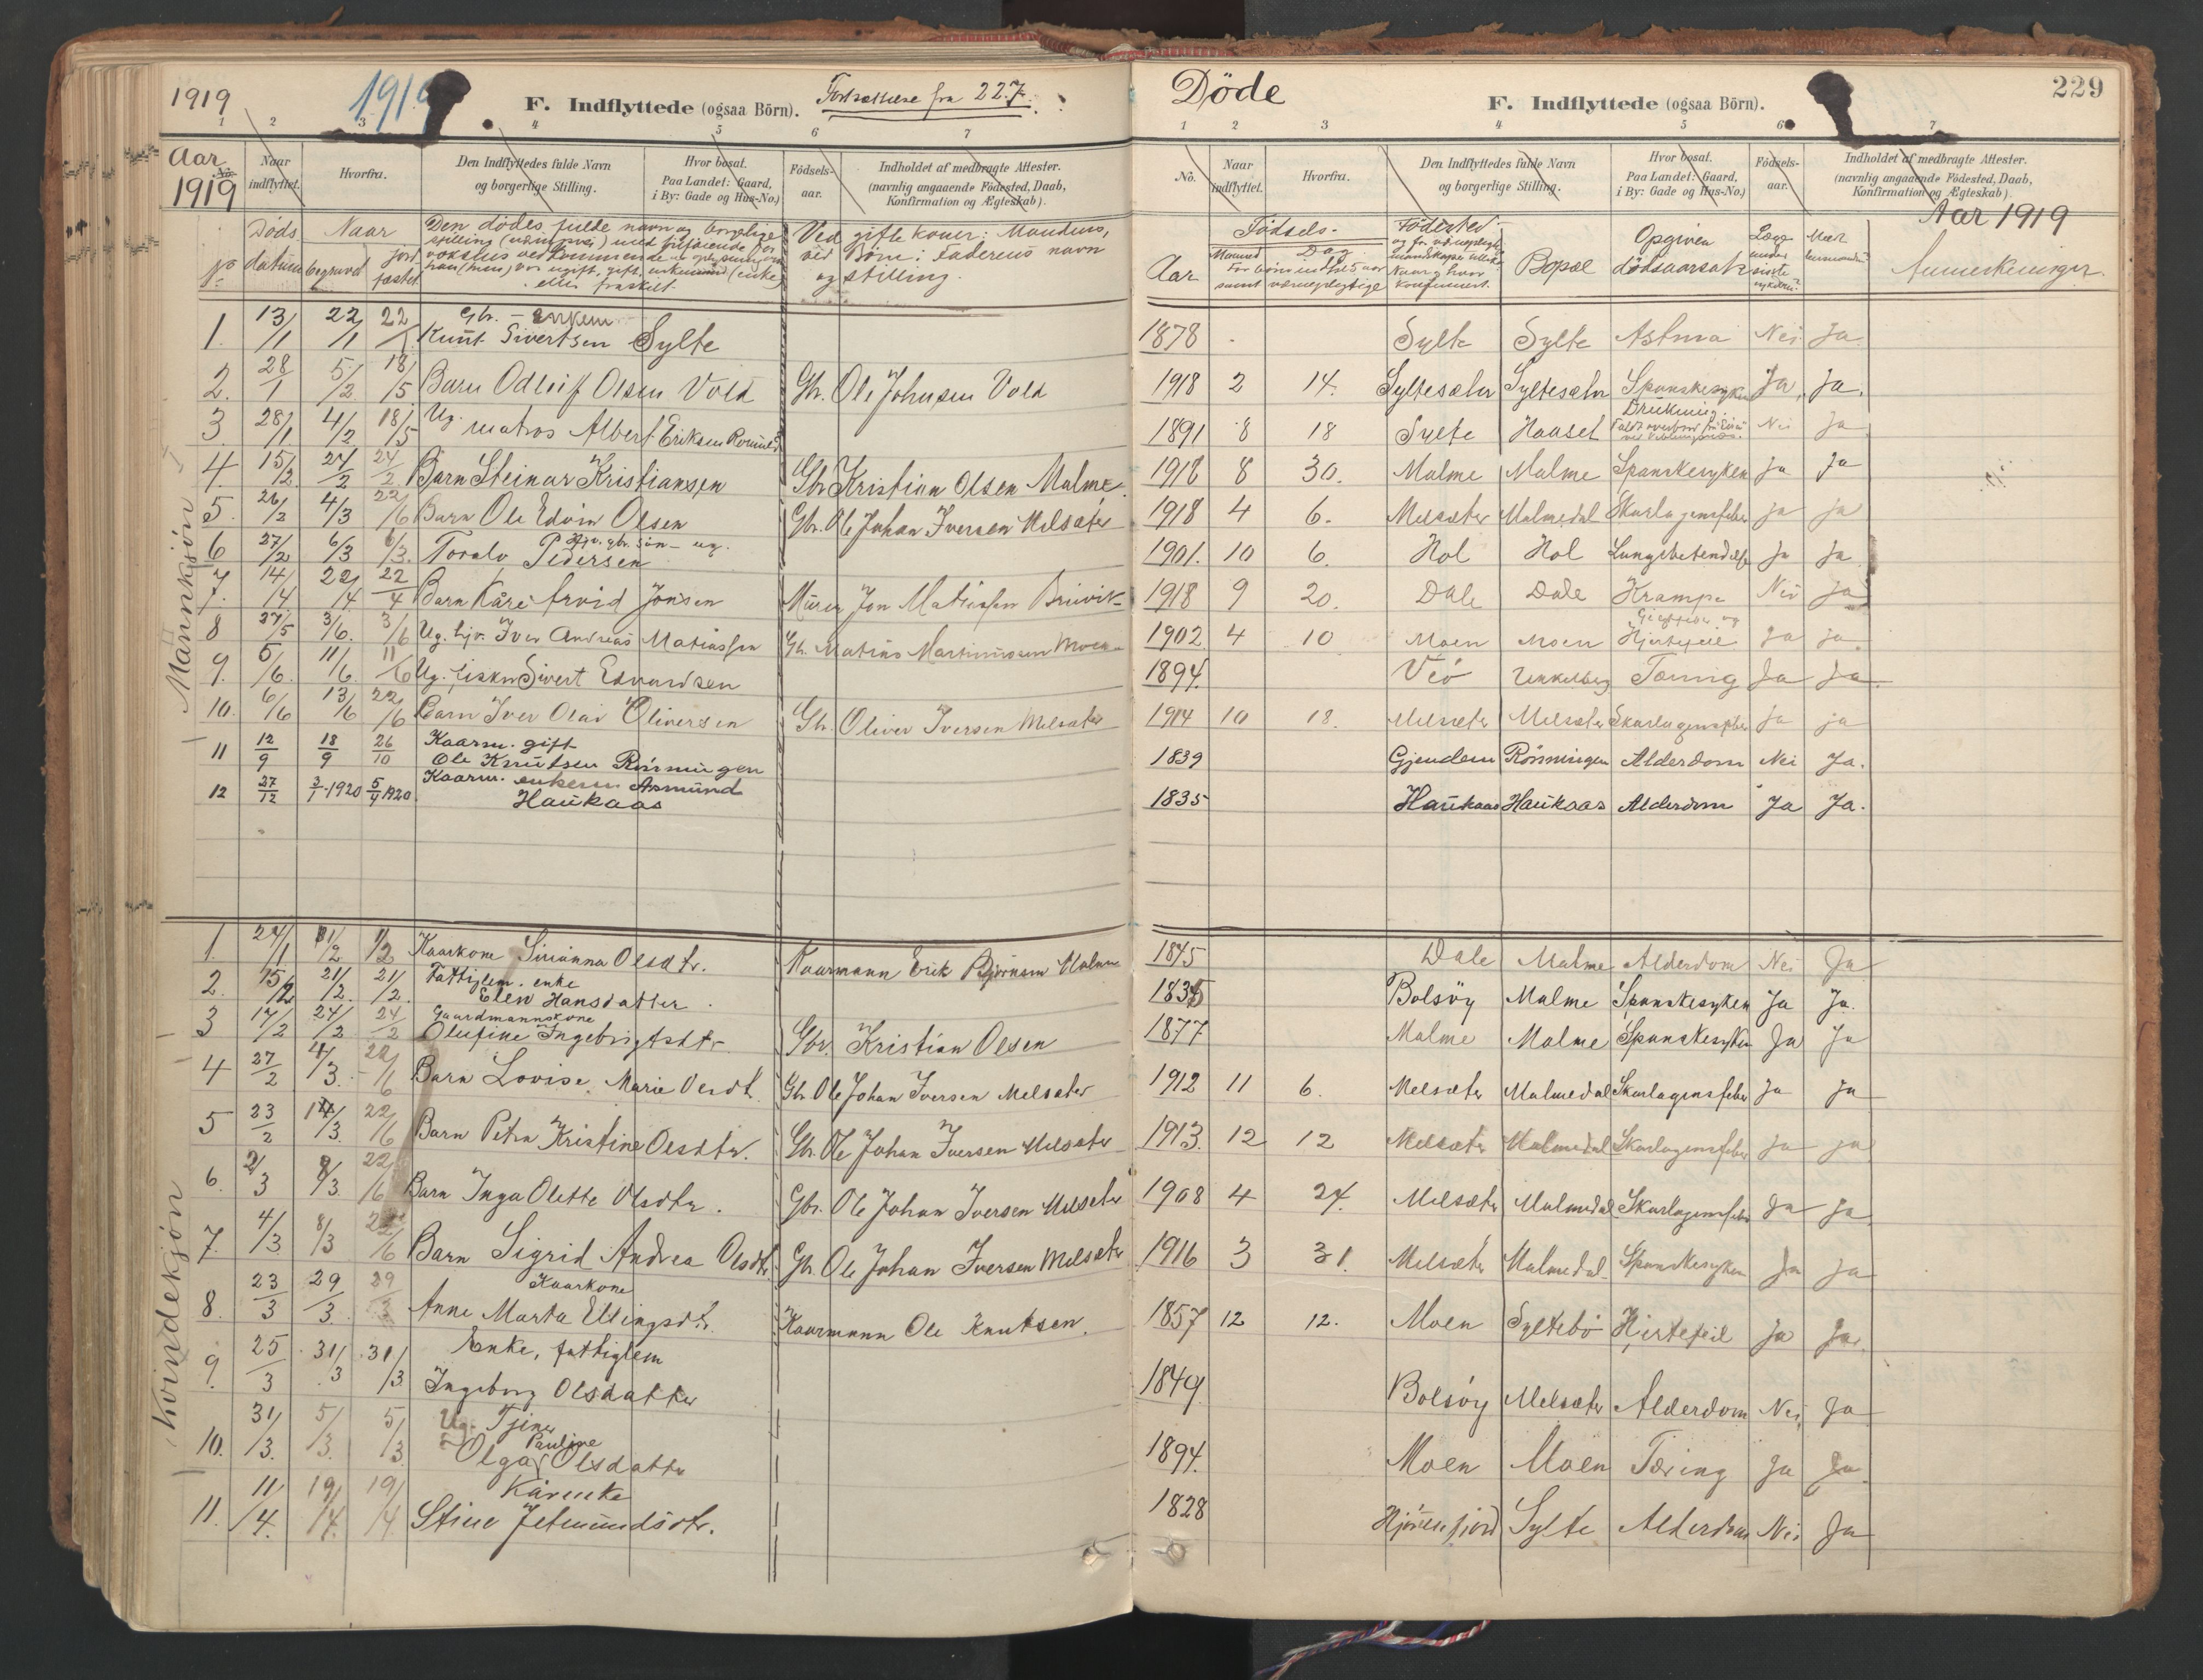 1919
1919
F. Indflyttede (ogsaa Börn).
Fortsættelse fra 227.
1 2 3 4 5 6 7
Aar
1919
No.
Naar indflyttet.
Hvorfra.
Den Indflyttedes fulde Navn og borgerlige Stilling.
Hvor bosat. Paa Landet: Gaard, i By: Gade og Hus-No.)
Födsels-aar.
Indholdet af medbragte Attester. (navnlig angaaende Födested, Daab, Konfirmation og Ægteskab).
No
Døds datum
Naar begravet
jord fæstet
Den dødes fulde navn og borgelige stilling
eller fraskilt.
Ved gifte koner: Mandens, ved Börn: Faderens navn og stilling.
Mannkjøn
1. 13/1 22/1 22 Gbr. – enkem Knut Sivertsen Sylte
2. 28/1 5/2 18/5 Barn Odleif Olsen Vold Gbr. Ole Johnsen Vold
3 28/1 4/2 18/5 Ug. matros Albert Eriksen
4. 15/2 24/2 24/2 Barn Steinar Kristiansen Gbr Kristian Olsen Malme.
5. 26/2 4/3 22/6 Barn Ole Edvin Olsen Gbr. Ole Johan Iversen Melsæter
6 27/2 6/3 6/3. Toralv Pedersen gbr. søn – ug.
7. 14/4 22/4 22/4 Barn Kåre Arvid Jonsen Murer Jon Matiassen
8 27/5 3/6. 3/6 Ug. Iver Andreas Matiassen Gbr. Matias Martinussen Moen
9. 5/6. 11/6. 11/6 Ug. fisker Sivert Edvardsen
10. 6/6 13/6 22/6 Barn Iver Olai Oliversen Gbr. Oliver Iversen Melsæter
11 12/9 18/9 26/10 Kaarm. gift Ole Knutsen Rönningen
12 27/12 3/1 1920 5/4 1920 Kaarm. enkem Asmund Haukaas
Kvindekjøn
1. 24/1 1/2 1/2 Kaarkone Sirianna Olsdtr. Kaarmann Erik Bjørnsen Malme
2. 15/2 21/2. 21/2. Fattiglem. enke Elen Hansdatter
3 17/2 24/2 24/2 Gaardmannskone Olufine Ingebrigtsdtr. Gbr. Kristian Olsen
4 27/2 4/3. 22/6 Barn Lovise Marie Olsdt. Gbr. Ole Johan Iversen Melsæter
5 23/2 14/3. 22/6 Barn Petra Kristine Olsdtr. Gbr. Ole Johan Iversen Melsæter
6. 2/3 8/3. 22/6 Barn Inga Olette Olsdtr. Gbr. Ole Johan Iversen Melsæter
7. 4/3 8/3 22/6 Barn Sigrid Andrea Olsdtr. Gbr. Ole Johan Iversen Melsæter
8. 23/3 29/3 29/3 Kaarkone Anne Marta Ellingsdtr. Kaarmann Ole Knutsen.
9. 25/3 31/3 31/3 Enke, fattiglem Ingeborg Olsdatter
10. 31/3. 5/3. 5/3 Ug. Tjener Olga Pauline Olsdatter
11. 11/4. 19/4. 19/4 Kårenke Stine Jetmundsdtr.
Döde
229
F. Indflyttede (ogsaa Börn).
1 2 3 4 5 6 7
No.
Naar indflyttet.
Hvorfra.
Den Indflyttedes fulde Navn og borgerlige Stilling.
Hvor bosat. Paa Landet: Gaard, i By: Gade og Hus-No.)
Födsels-aar.
Indholdet af medbragte Attester. (navnlig angaaende Födested, Daab, Konfirmation og Ægteskab).
Aar 1919
Födsels-
Aar
Maaned Dag
For börn indtil 5 aar samt værnepligtige
Födested
Bopæl
Opgiven dødsaarsak
Anmerkninger.
1878 Sylte Sylte Astma Nei Ja
1918 2 14. Syltesæter Syltesæter Spanskesyken Ja Ja.
1891 8 18 Sylte Haaset Drukning. Nei Ja
1918 8 30. Malme Malme Spanskesyken Ja Ja
1918 4 6. Melsæter Malmedal Skarlagensfeber ja ja
1901. 10 6. Hol Hol Lungebetendelse Ja Ja
1918 9 20. Dale Dale Krampe Nei Ja
1902 4 10 Moen Moen Hjertefeil Ja ja
1894. Veö Tæring Ja Ja
1914 10 18. Melsæter Melsæter Skarlagensfeber ja ja
1839 Gjendem Rönningen Alderdom Nei Ja.
1835 Haukaas Haukaas Alderdom Ja Ja.
1845 Dale Malme Alderdom Nei Ja
1835 Bolsöy Malme Spanskesyken Ja Ja.
1877 Malme Malme Spanskesyken Ja Ja
1912 11 6. Melsæter Malmedal Skarlagensfeber Ja Ja
1913. 12 12 Melsæter Malmedal Skarlagensfeber Ja ja
1908 4 24. Melsæter Malmedal Skarlagensfeber Ja Ja
1916 3 31. Melsæter Malmedal Spanskesyken Ja Ja
1857 12 12. Moen Syltebö Hjertefeil Ja Ja.
1849. Bolsöy Melsæter Alderdom Nei. Ja
1894. Moen Moen Tæring Ja Ja
1828 Hjörenfjord Sylte Alderdom Nei Ja